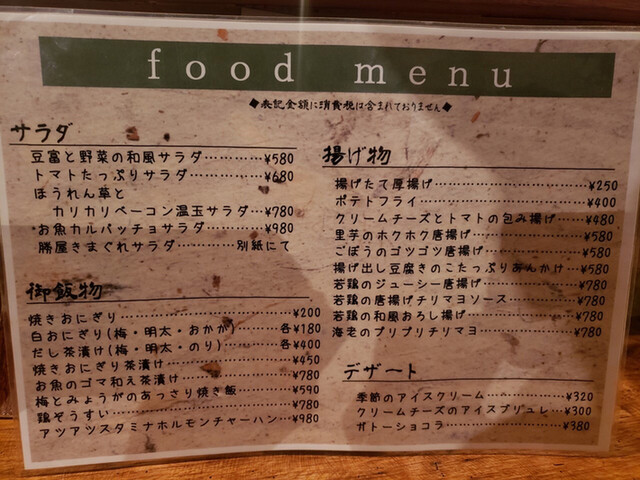 food menu
◆表記金額に消費税は含まれておりません◆
サラダ
豆富と野菜の和風サラダ…………¥580
トマトたっぷりサラダ……………¥680
ほうれん草と
カリカリベーコン温玉サラダ…¥780
お魚カルパッチョサラダ…………¥980
勝屋きまぐれサラダ…………別紙にて
御飯物
焼きおにぎり……………………………¥200
白おにぎり(梅・明太・おかか)………各¥180
だし茶漬け(梅・明太・のり)…………各¥400
焼きおにぎり茶漬け……………………¥450
お魚のゴマ和え茶漬け…………………¥780
梅とみょうがのあっさり焼き飯………¥590
鶏ぞうすい………………………………¥780
アツアツスタミナホルモンチャーハン…¥980
揚げ物
揚げたて厚揚げ…………………………¥250
ポテトフライ……………………………¥400
クリームチーズとトマトの包み揚げ…¥480
里芋のホクホク唐揚げ…………………¥580
ごぼうのゴツゴツ唐揚げ………………¥580
揚げ出し豆腐きのこたっぷりあんかけ…¥580
若鶏のジューシー唐揚げ………………¥780
若鶏の唐揚げチリマヨソース…………¥780
若鶏の和風おろし揚げ…………………¥780
海老のプリプリチリマヨ………………¥780
デザート
季節のアイスクリーム…………………¥320
クリームチーズのアイスブリュレ……¥300
ガトーショコラ…………………………¥380